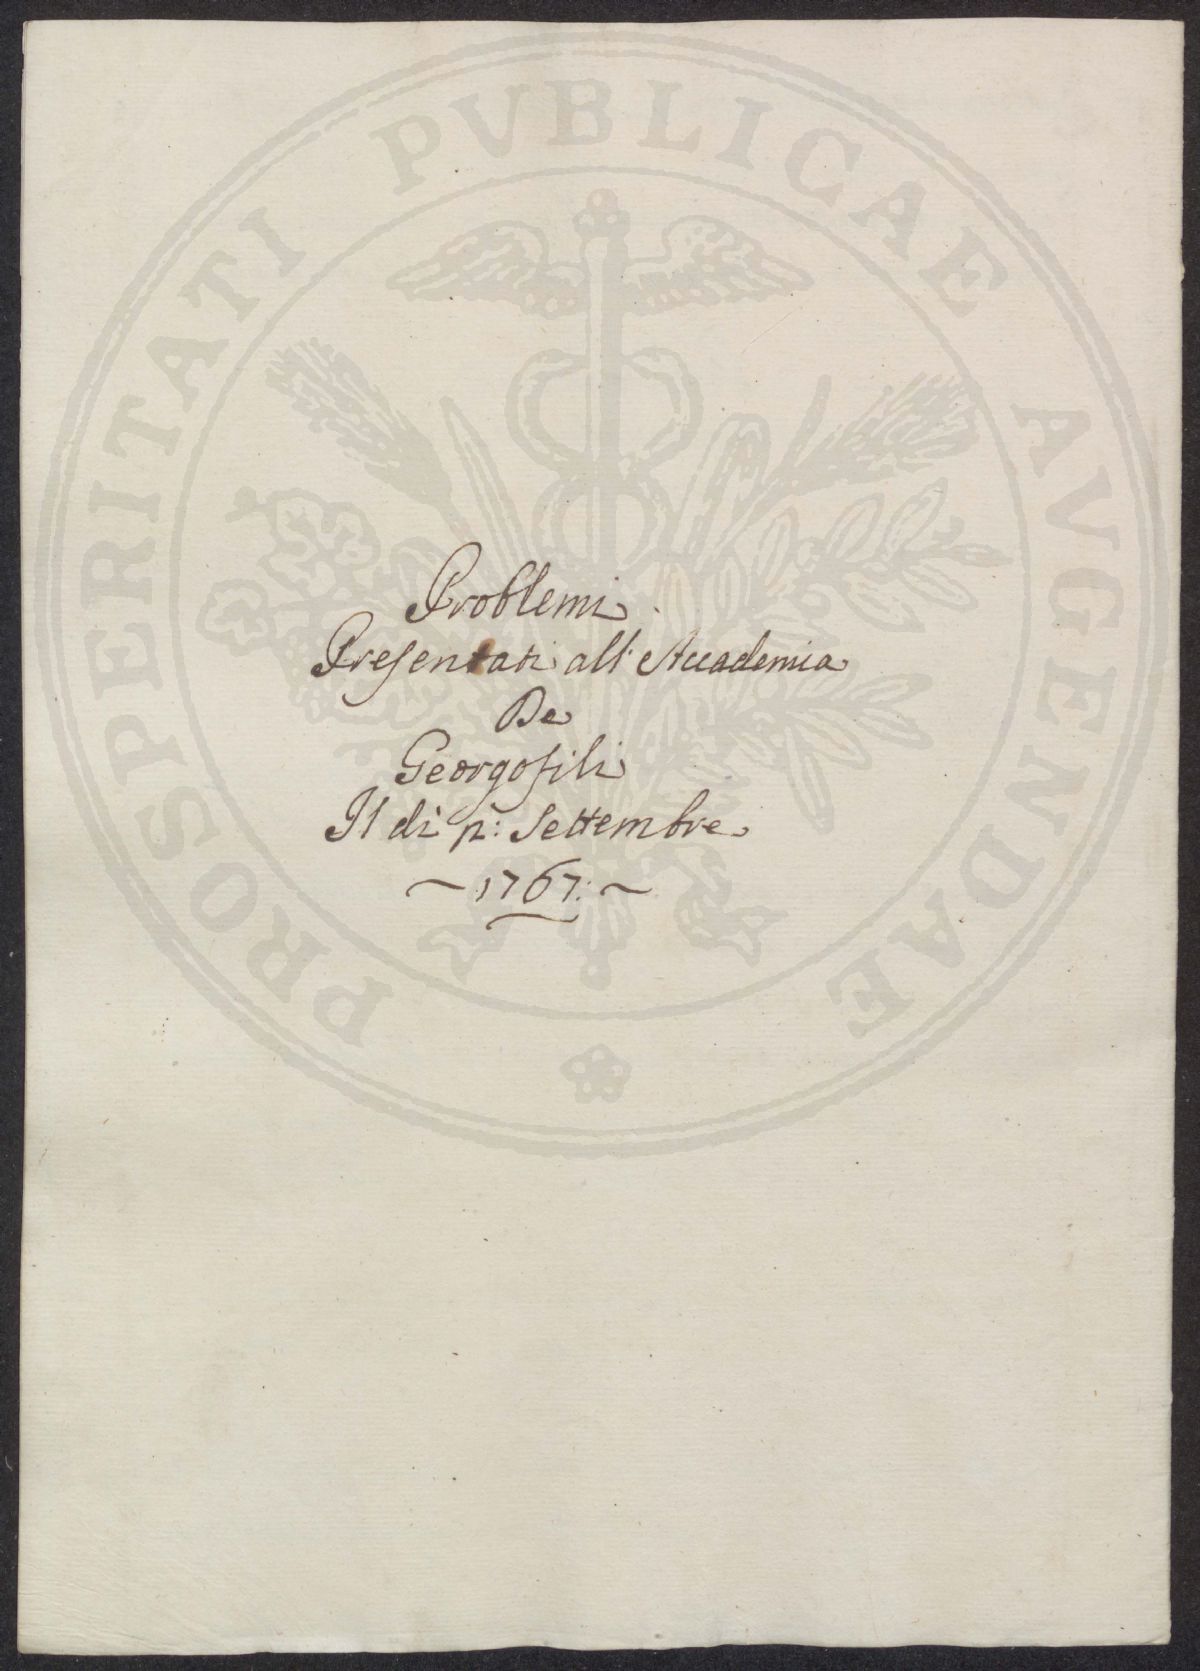 PROSPERITATI PUBLICAE AVGENDAE
Problemi
Presentati all' Accademia
De
Georgofili
Il di p:º Settembre
~ 1767: ~